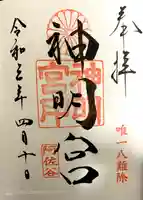 奉拝
唯一八難除
神明宮
阿佐谷
令和三年四月十日